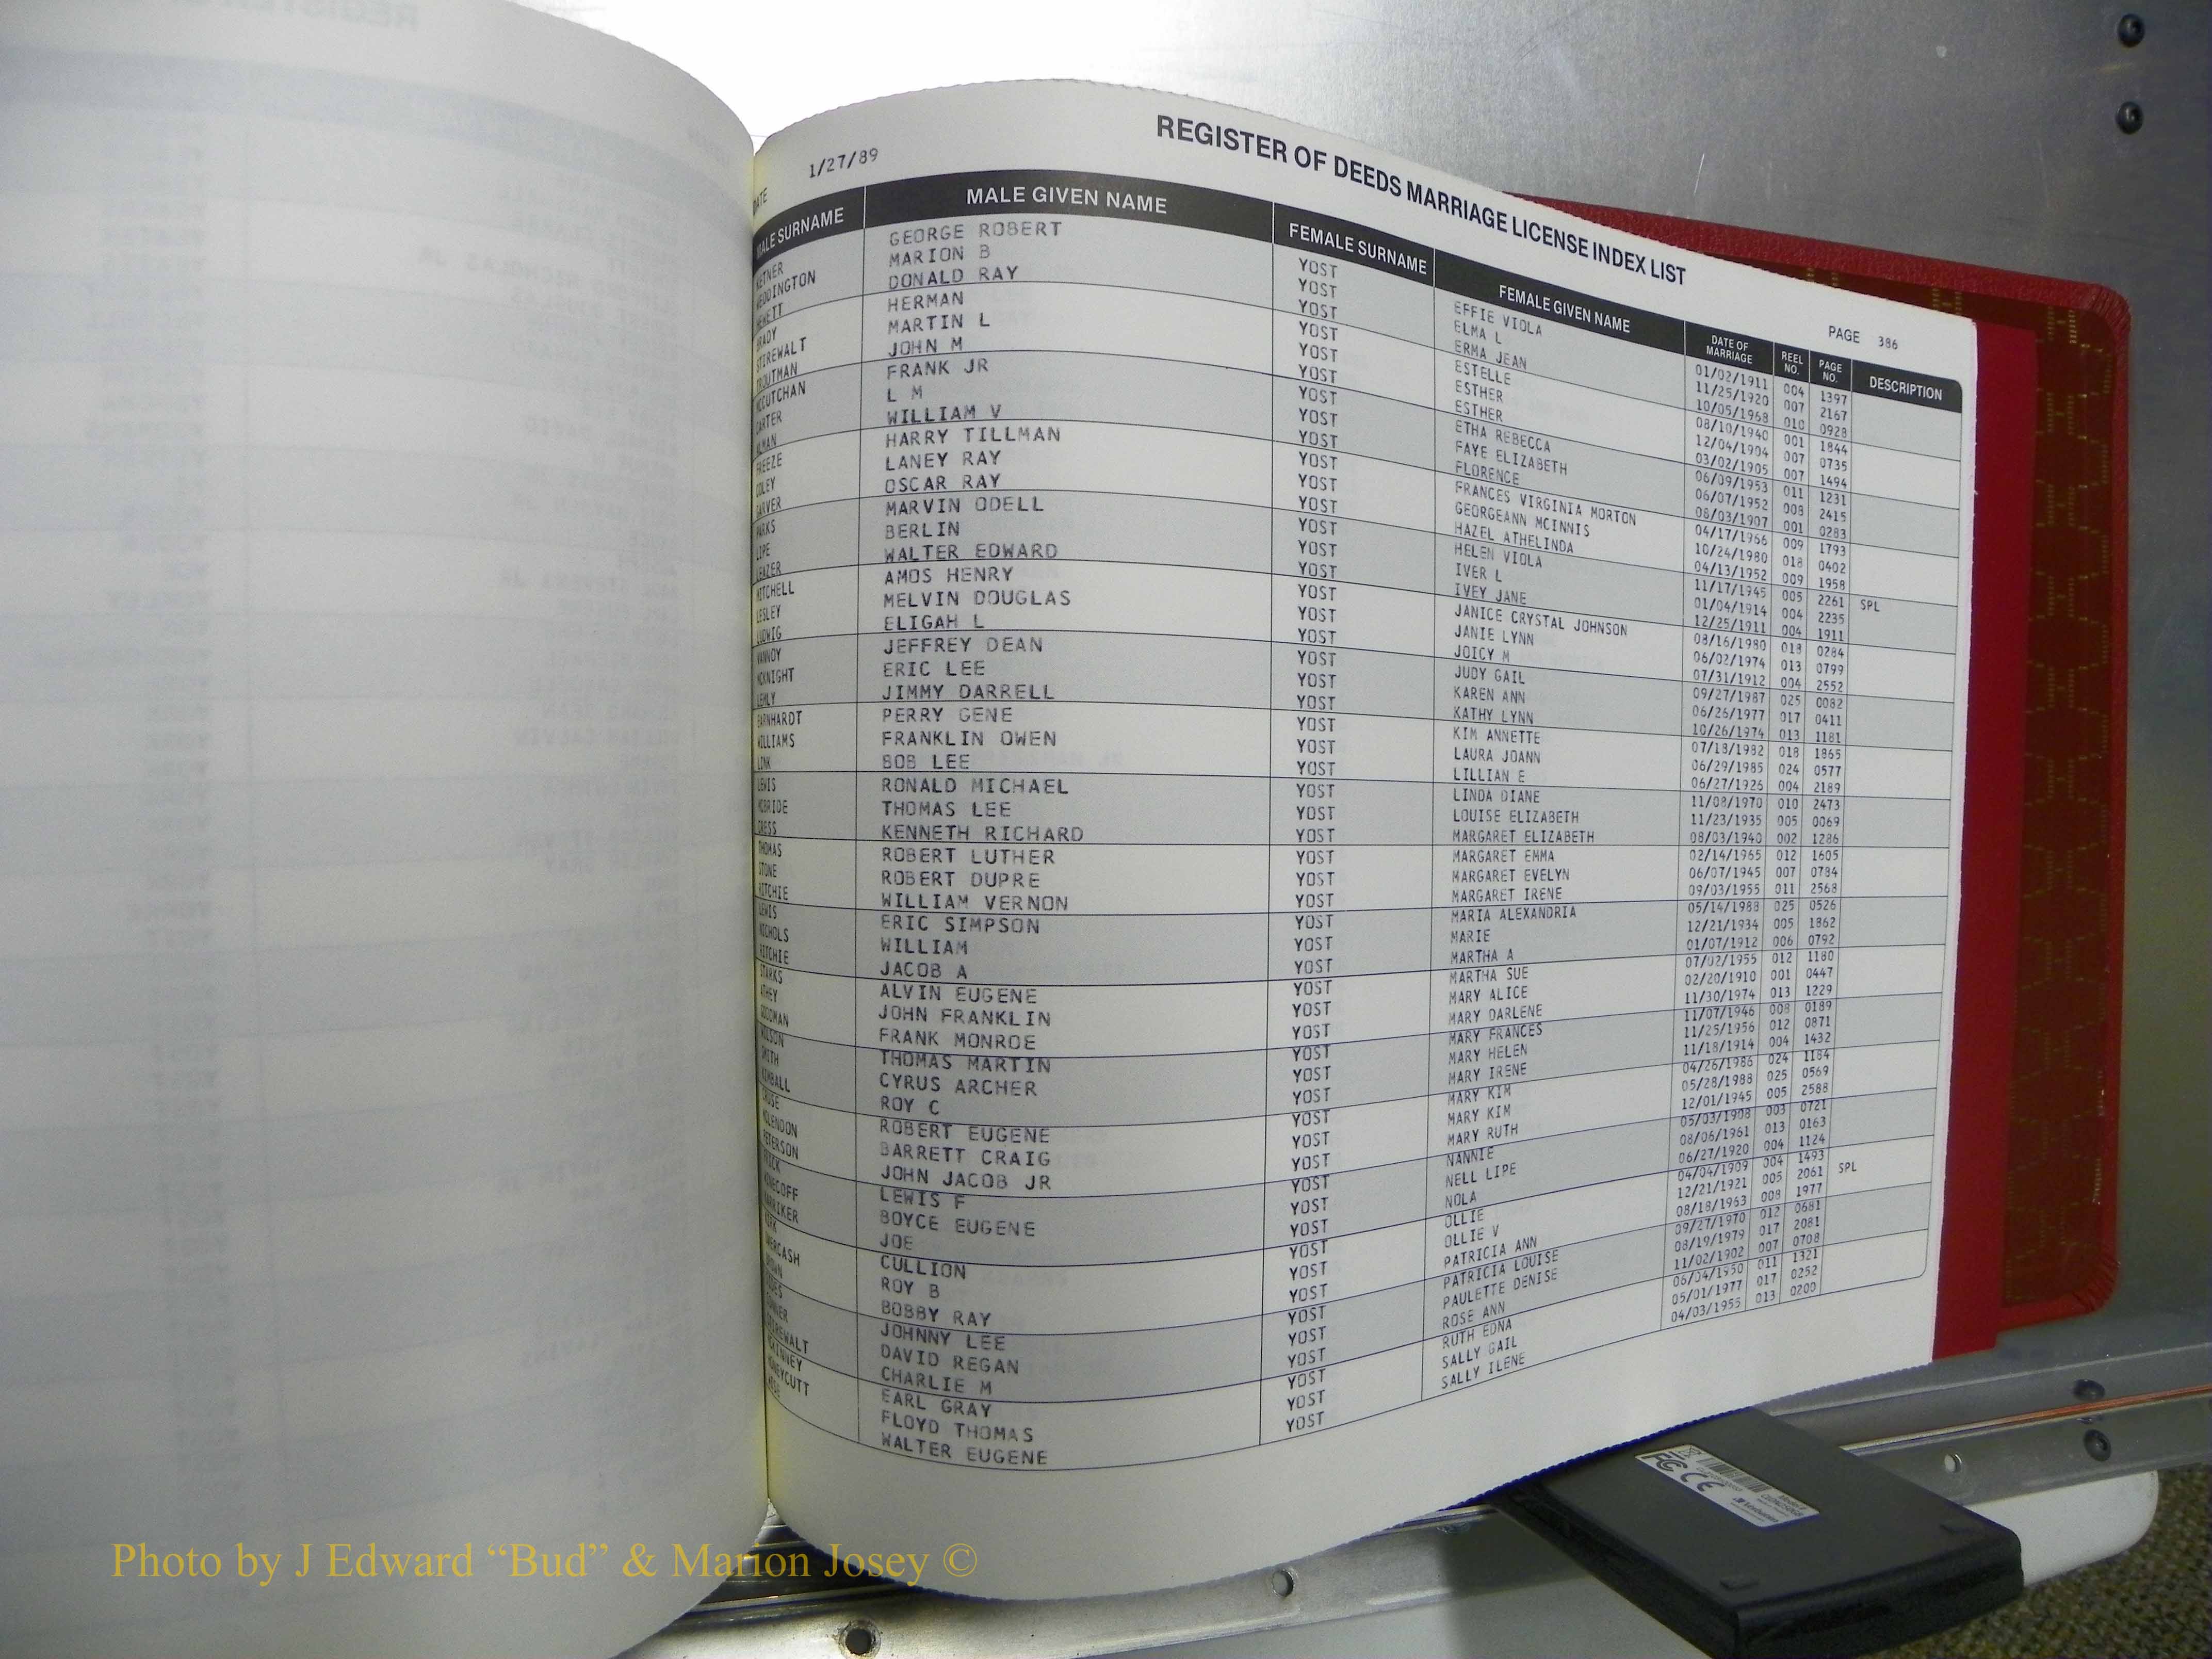 DATE 1/27/89
REGISTER OF DEEDS MARRIAGE LICENSE INDEX LIST
PAGE 386
MALE SURNAME MALE GIVEN NAME FEMALE SURNAME FEMALE GIVEN NAME DATE OF MARRIAGE REEL NO. PAGE NO. DESCRIPTION
KETNER GEORGE ROBERT YOST EFFIE VIOLA 01/02/1911 004 1397
WEDDINGTON MARION B YOST ELMA L 11/25/1920 007 2167
HEWETT DONALD RAY YOST ERMA JEAN 10/05/1968 010 0928
BRADY HERMAN YOST ESTELLE 08/10/1940 001 1844
STIREWALT MARTIN L YOST ESTHER 12/04/1904 007 0735
TROUTMAN JOHN M YOST ESTHER 03/02/1905 007 1494
MCCUTCHAN FRANK JR YOST ETHA REBECCA 06/09/1953 011 1231
CARTER L M YOST FAYE ELIZABETH 06/07/1952 008 2415
ALMAN WILLIAM V YOST FLORENCE 08/03/1907 001 0283
FREEZE HARRY TILLMAN YOST FRANCES VIRGINIA MORTON 04/17/1966 009 1793
COLEY LANEY RAY YOST GEORGEANN MCINNIS 10/24/1980 018 0402
GARVER OSCAR RAY YOST HAZEL ATHELINDA 04/13/1952 009 1958
PARKS MARVIN ODELL YOST HELEN VIOLA 11/17/1945 005 2261 SPL
LIPE BERLIN YOST IVER L 01/04/1914 004 2235
LEAZER WALTER EDWARD YOST IVEY JANE 12/25/1911 004 1911
MITCHELL AMOS HENRY YOST JANICE CRYSTAL JOHNSON 08/16/1980 018 0284
LESLEY MELVIN DOUGLAS YOST JANIE LYNN 06/02/1974 013 0799
LUDWIG ELIGAH L YOST JOICY M 07/31/1912 004 2552
VANNOY JEFFREY DEAN YOST JUDY GAIL 09/27/1987 025 0082
MCKNIGHT ERIC LEE YOST KAREN ANN 06/26/1977 017 0411
LEMLY JIMMY DARRELL YOST KATHY LYNN 10/26/1974 013 1181
EARNHARDT PERRY GENE YOST KIM ANNETTE 07/18/1982 018 1865
WILLIAMS FRANKLIN OWEN YOST LAURA JOANN 06/29/1985 024 0577
LINK BOB LEE YOST LILLIAN E 06/27/1926 004 2189
LEWIS RONALD MICHAEL YOST LINDA DIANE 11/08/1970 010 2473
MCBRIDE THOMAS LEE YOST LOUISE ELIZABETH 11/23/1935 005 0069
CRESS KENNETH RICHARD YOST MARGARET ELIZABETH 08/03/1940 002 1286
THOMAS ROBERT LUTHER YOST MARGARET EMMA 02/14/1965 012 1605
STONE ROBERT DUPRE YOST MARGARET EVELYN 06/07/1945 007 0784
RITCHIE WILLIAM VERNON YOST MARGARET IRENE 09/03/1955 011 2568
LEWIS ERIC SIMPSON YOST MARIA ALEXANDRIA 05/14/1988 025 0526
NICHOLS WILLIAM YOST MARIE 12/21/1934 005 1862
RITCHIE JACOB A YOST MARTHA A 01/07/1912 006 0792
STARKS ALVIN EUGENE YOST MARTHA SUE 07/02/1955 012 1180
ATHEY JOHN FRANKLIN YOST MARY ALICE 02/20/1910 001 0447
GOODMAN FRANK MONROE YOST MARY DARLENE 11/30/1974 013 1229
WILSON THOMAS MARTIN YOST MARY FRANCES 11/07/1946 008 0189
SMITH CYRUS ARCHER YOST MARY HELEN 11/25/1956 012 0871
KIMBALL ROY C YOST MARY IRENE 11/18/1914 004 1432
CRUSE ROBERT EUGENE YOST MARY KIM 04/26/1986 024 1184
MCLENDON BARRETT CRAIG YOST MARY KIM 05/28/1988 025 0569
PETERSON JOHN JACOB JR YOST MARY RUTH 12/01/1945 005 2588
LEWIS F YOST NANNIE 05/03/1908 003 0721
BOYCE EUGENE YOST NELL LIPE 08/06/1961 013 0163
JOE YOST NOLA 06/27/1920 004 1124
KIRK CULLION YOST OLLIE 04/04/1909 004 1493
OVERCASH ROY B YOST OLLIE V 12/21/1921 005 2061 SPL
BROWN BOBBY RAY YOST PATRICIA ANN 08/18/1963 008 1977
JOHNNY LEE YOST PATRICIA LOUISE 09/27/1970 012 0681
DAVID REGAN YOST PAULETTE DENISE 08/19/1979 017 2081
STIREWALT CHARLIE M YOST ROSE ANN 11/02/1902 007 0708
MCKINNEY EARL GRAY YOST RUTH EDNA 06/04/1950 011 1321
HONEYCUTT FLOYD THOMAS YOST SALLY GAIL 05/01/1977 017 0252
WALTER EUGENE YOST SALLY ILENE 04/03/1955 013 0200
FC CE
Verbatim
Photo by J Edward “Bud” & Marion Josey ©